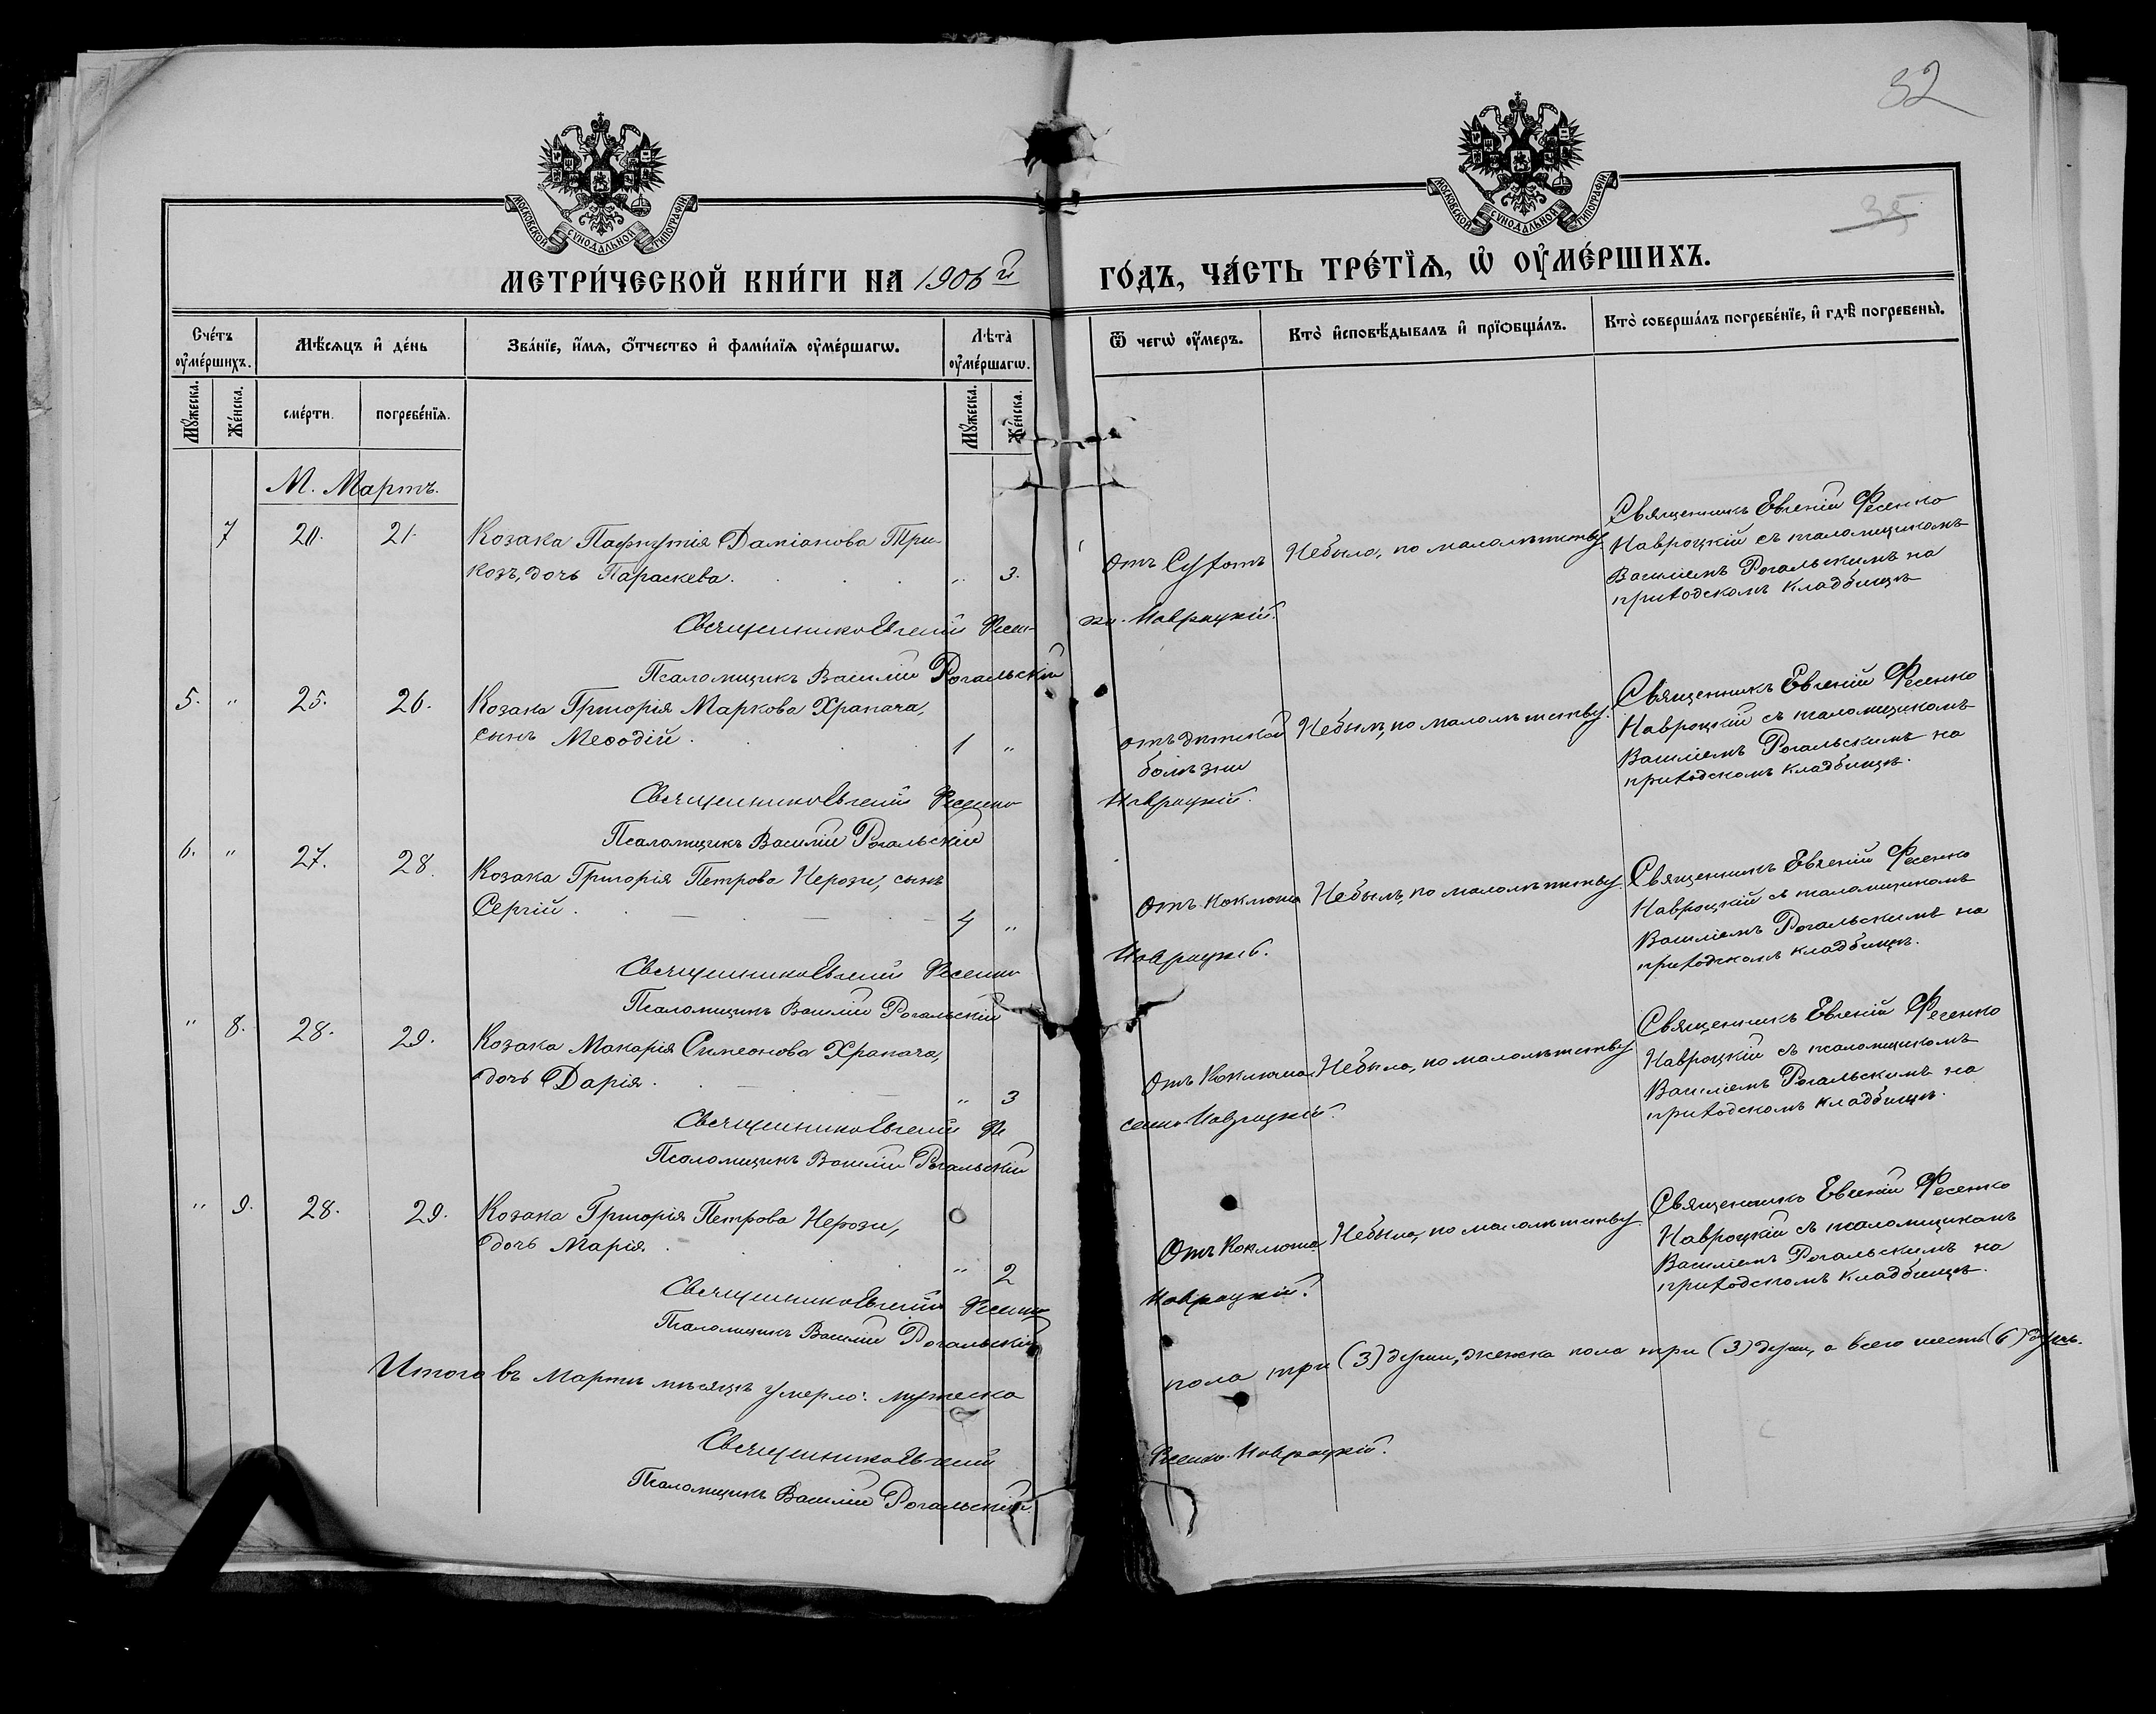 32
35
МОСКОВСКОЙ СѴНОДАЛЬНОЙ ТИПОГРАФІИ
МОСКОВСКОЙ СѴНОДАЛЬНОЙ ТИПОГРАФІИ
МЕТРИ́ЧЕСКОЙ КНИ́ГИ НА 1906й ГО́ДЪ, ЧА́СТЬ ТРЕ́ТЇѦ, Ѡ҆ ОУ҆МЕ́РШИХЪ.
Сче́тъ оу҆ме́ршихъ.
Мѣ́сѧцъ и҆ де́нь
Зва́нїе, и҆́мѧ, ѻ҆́тчество и҆ фами́лїѧ оу҆ме́ршагѡ.
Лѣ̑та̀ оу҆ме́ршагѡ.
Ѿ чегѡ̀ оу҆́меръ.
Кто̀ и҆сповѣ́дывалъ и҆ прїѡбща́лъ.
Кто̀ соверша́лъ погребе́нїе, и҆ гдѣ̀ погребены̀.
Мꙋ́жеска.
Же́нска.
сме́рти.
погребе́нїѧ.
Мꙋ́жеска.
Же́нска.
М. Мартъ.
7 20. 21. Козака Пафнутія Даміанова Три-
козъ, дочь Параскева. " 3.
Отъ Сухотъ
Небыло, по малолѣтству.
Священникъ Евгеній Фесенко
Навроцкій съ псаломщикомъ
Василіемъ Рогальскимъ на
приходскомъ кладбищѣ
Священникъ Евгеній Фесен-
ко-Навроцкій.
Псаломщикъ Василій Рогальскій
5. " 25. 26. Козака Григорія Маркова Храпача,
сынъ Меѳодій. 1 "
отъ дѣтской
болѣзни
Небылъ, по малолѣтству.
Священникъ Евгеній Фесенко
Навроцкій съ псаломщикомъ
Василіемъ Рогальскимъ на
приходскомъ кладбищѣ.
Священникъ Евгеній Фесенко
Навроцкій.
Псаломщикъ Василій Рогальскій
6. " 27. 28. Козака Григорія Петрова Нерози, сынъ
Сергій. 4 "
Отъ Коклюша
Небылъ, по малолѣтству.
Священникъ Евгеній Фесенко
Навроцкій съ псаломщикомъ
Василіемъ Рогальскимъ на
приходскомъ кладбищѣ.
Священникъ Евгеній Фесенко
Навроцкій.
Псаломщикъ Василій Рогальскій
" 8. 28. 29. Козака Макарія Симеонова Храпача,
дочь Дарія. " 3
Отъ Коклюша
Небыла, по малолѣтству
Священникъ Евгеній Фесенко
Навроцкій съ псаломщикомъ
Василіемъ Рогальскимъ на
приходскомъ кладбищѣ.
Священникъ Евгеній Фе
сенко-Навроцкій.
Псаломщикъ Василій Рогальскій
" 9. 28. 29. Козака Григорія Петрова Нерози,
дочь Марія. " 2
Отъ Коклюша
Небыла, по малолѣтству
Священникъ Евгеній Фесенко
Навроцкій съ псаломщикомъ
Василіемъ Рогальскимъ на
приходскомъ кладбищѣ.
Священникъ Евгеній Фесенко
Навроцкій.
Псаломщикъ Василій Рогальскій
Итого въ Мартѣ мѣсяцѣ умерло: мужеска пола три (3) души, женска пола три (3) души, а всего шесть (6) душъ.
Священникъ Евгеній Фесенко-Навроцкій.
Псаломщикъ Василій Рогальскій.